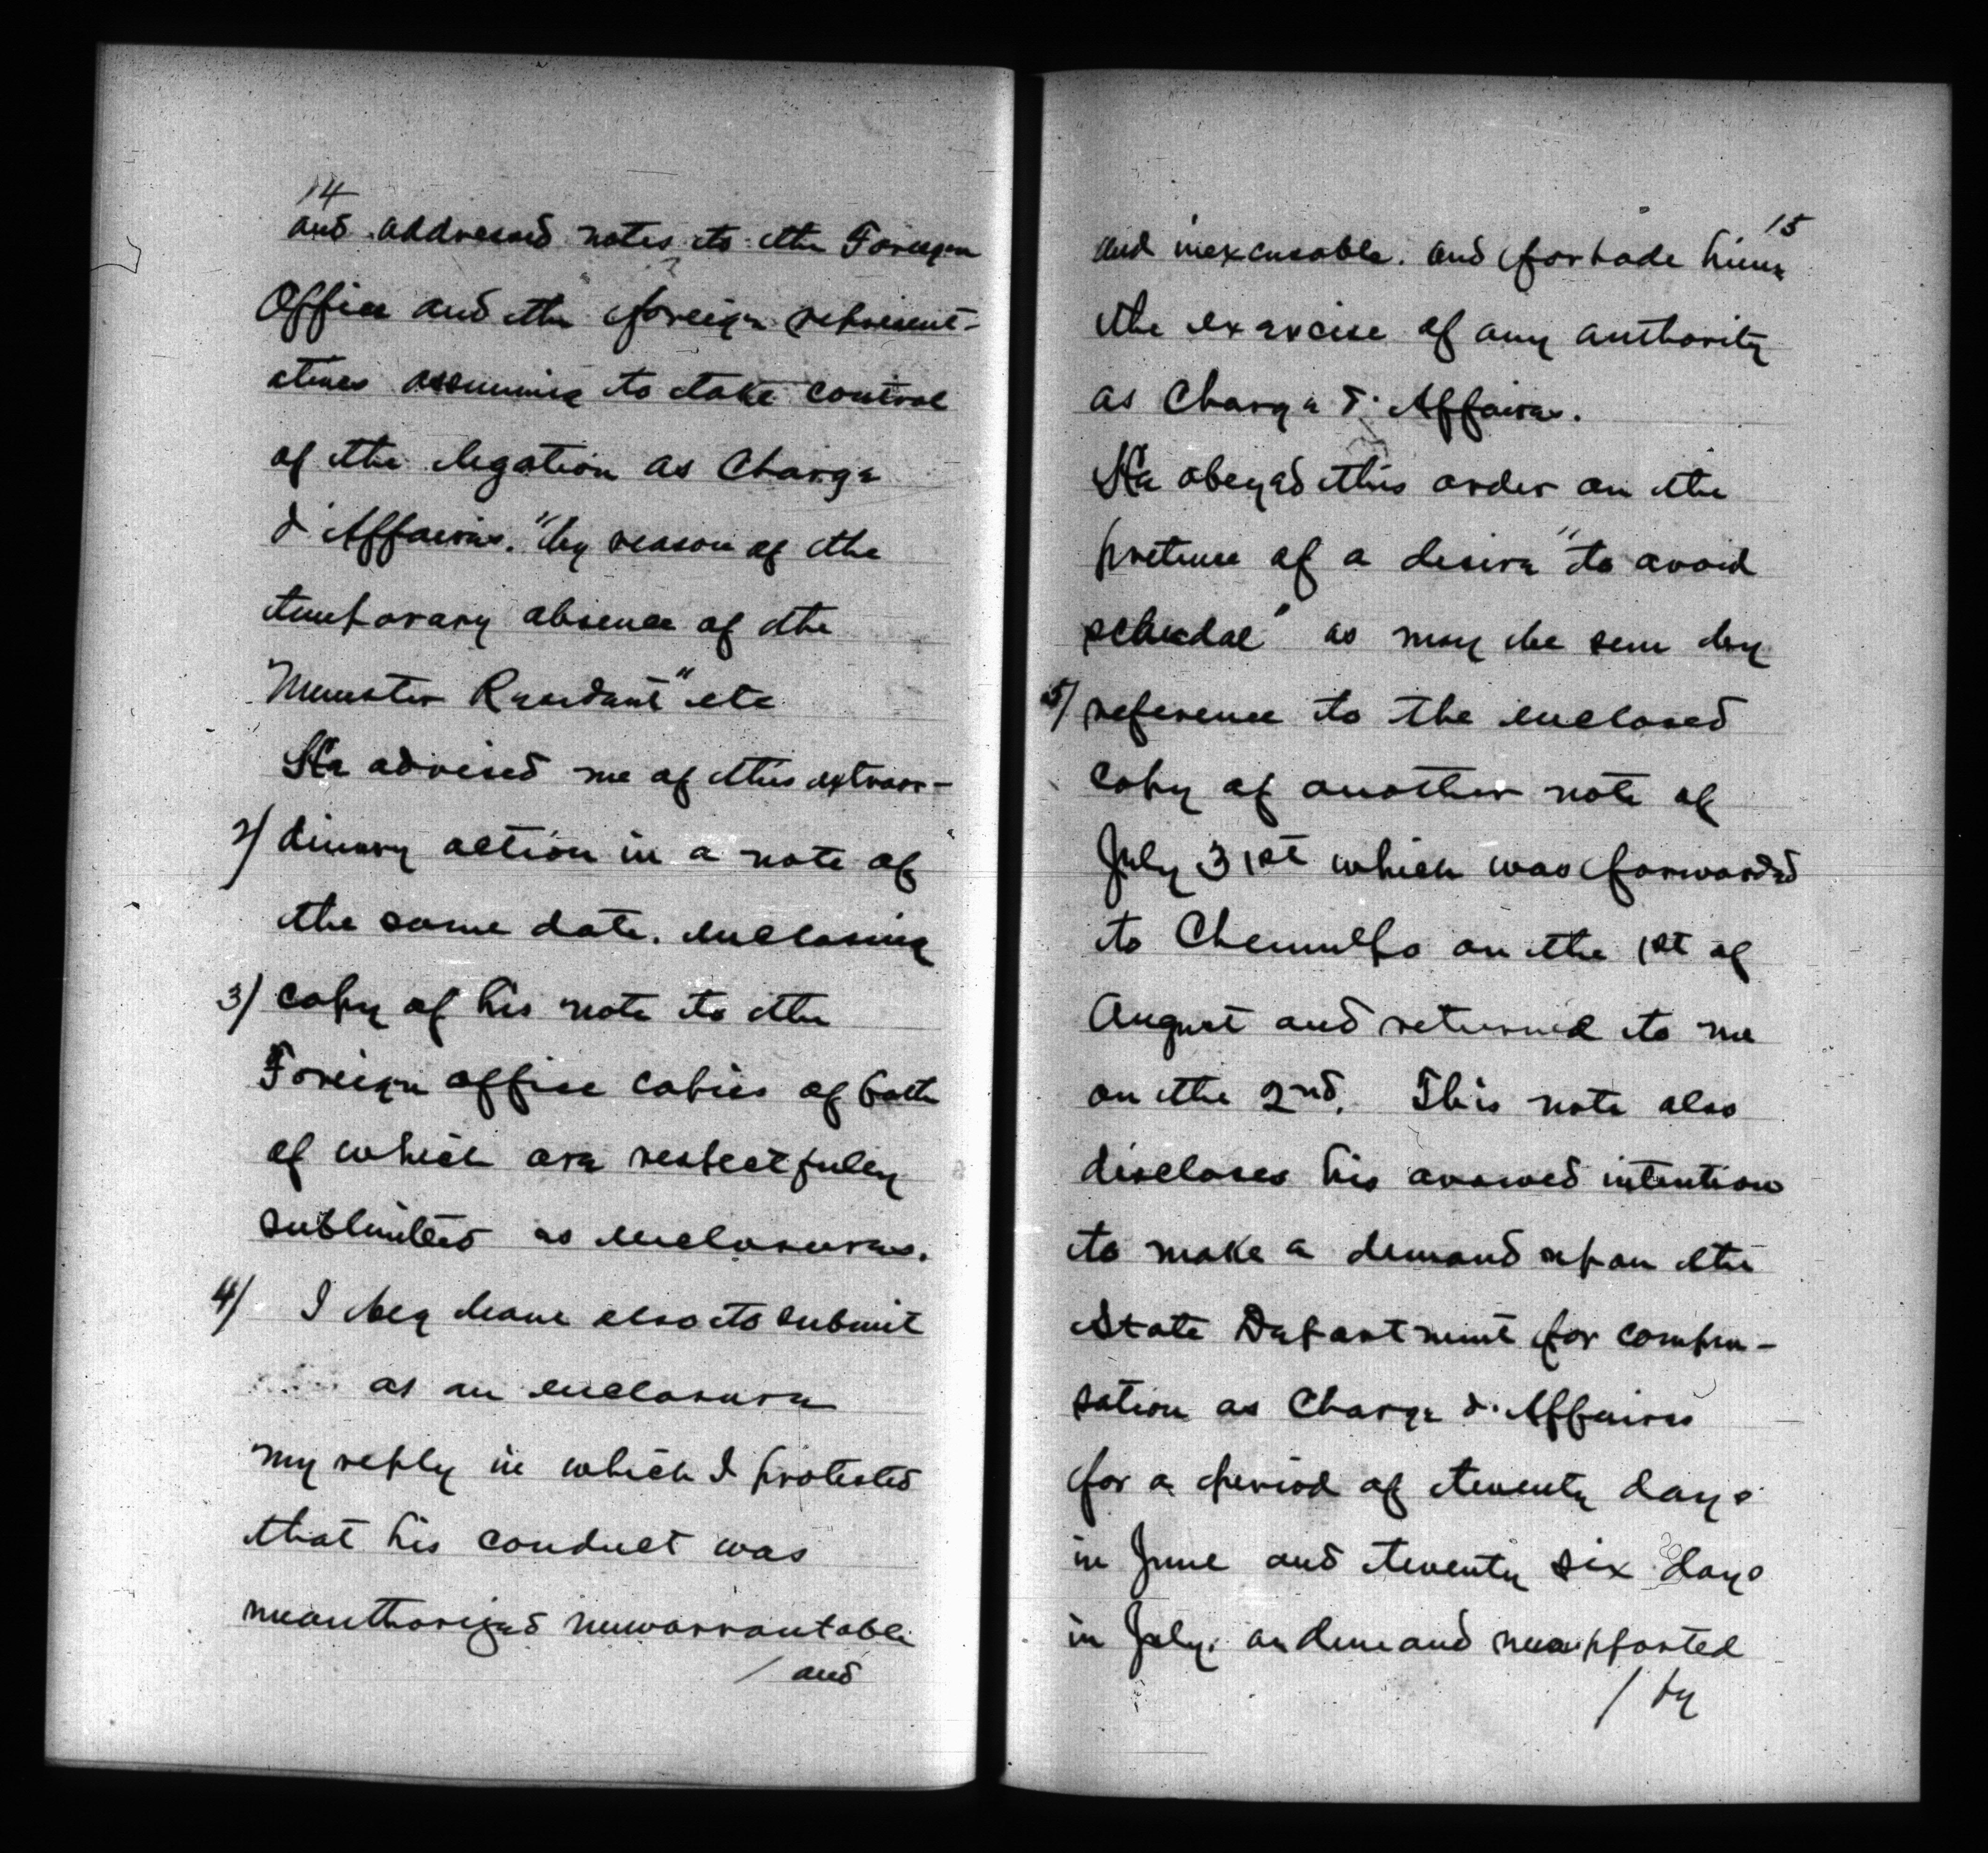 14
and addressed notes to the Foreign
Office and the foreign represent-
atives assuming to take control
of the legation as Charge
d'Affaires. "by reason of the
temporary absence of the
Minister Resident" etc
He advised me of this extraor-
2/ dinary action in a note of
the same date. enclosing
3/ copy of his note to the
Foreign office copies of both
of which are respectfully
submitted as enclosures.
4/ I beg leave also to submit
as an enclosure
my reply in which I protested
that his conduct was
unauthorized unwarrantable
/ and
15
and inexcusable. and forbade him
the exercise of any authority
as Charge d'Affaires.
He obeyed this order on the
pretense of a desire "to avoid
scandal" as may be seen by
5/ reference to the enclosed
copy of another note of
July 31st which was forwarded
to Chemulpo on the 1st of
August and returned to me
on the 2nd. This note also
discloses his avowed intention
to make a demand upon the
State Department for compen-
sation as Charge d'Affaires
for a period of twenty days
in June and twenty six days
in July. a demand unsupported
/ by